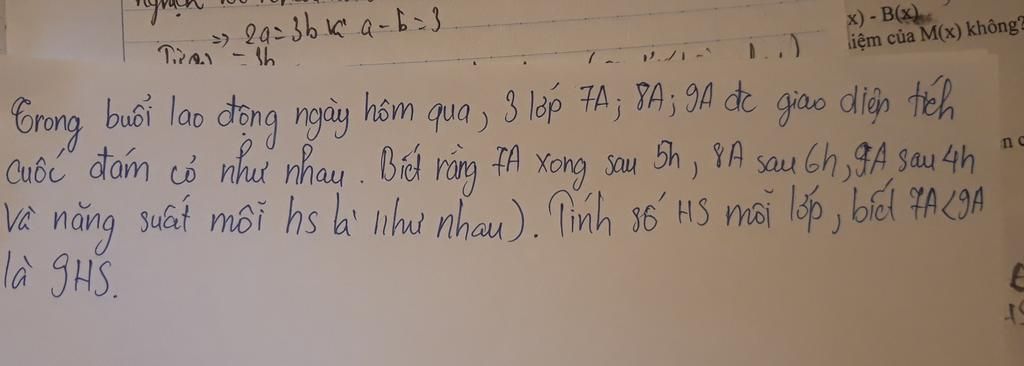 => 2a = 3b và a - b = 3
x) - B(x)
iệm của M(x) không?
Trong buổi lao động ngày hôm qua, 3 lớp 7A; 8A; 9A đc giao diện tích
cuốc đám cỏ như nhau. Biết rằng 7A xong sau 5h, 8A sau 6h, 9A sau 4h
và năng suất mỗi hs là như nhau). Tính số HS mỗi lớp, biết 7A<9A
là 9HS.